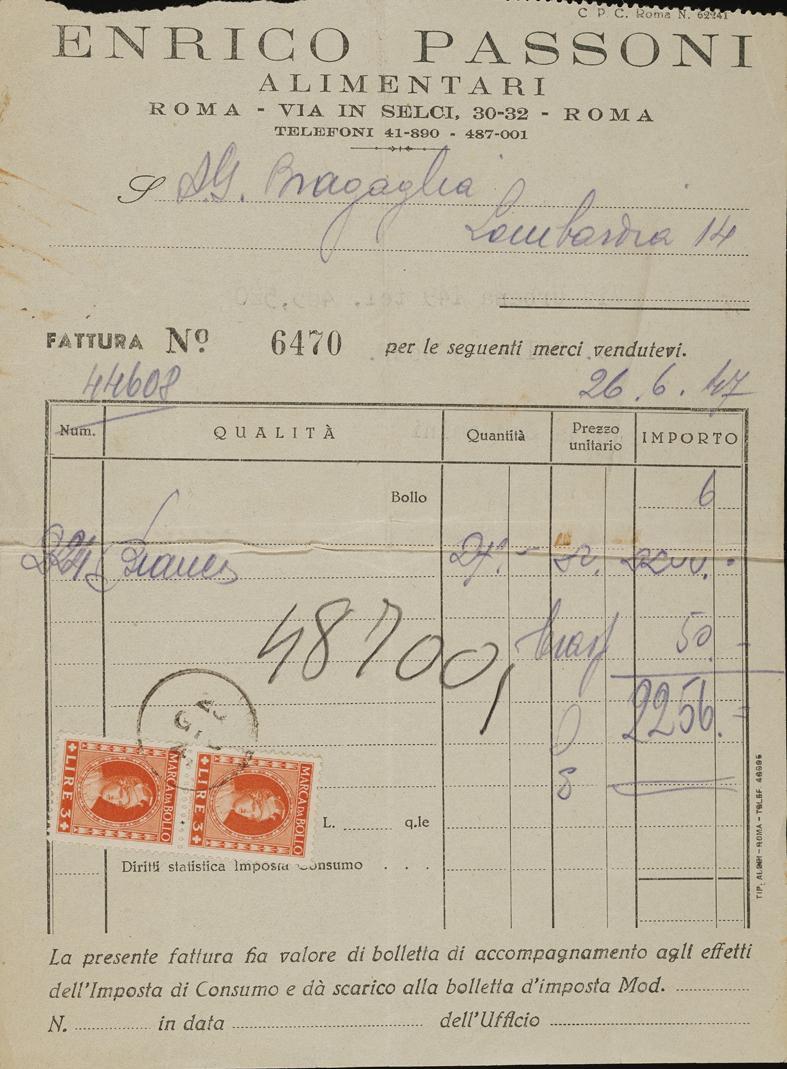 C P C. Roma N. 62241
ENRICO PASSONI
ALIMENTARI
ROMA - VIA IN SELCI, 30-32 - ROMA
TELEFONI 41-890 - 487-001
S A.G. Bragaglia
Lombardia 14
FATTURA Nº 6470 per le seguenti merci vendutevi.
44608 26.6.47
Num. QUALITÀ Quantità Prezzo unitario IMPORTO
Bollo 6
48700,
50.-
2256.=
MARCA DA BOLLO LIRE 3
MARCA DA BOLLO LIRE 3
L. q.le
Diritti statistica Imposta Consumo . . .
La presente fattura fia valore di bolletta di accompagnamento agli effetti
dell'Imposta di Consumo e dà scarico alla bolletta d'imposta Mod.
N. in data dell'Ufficio